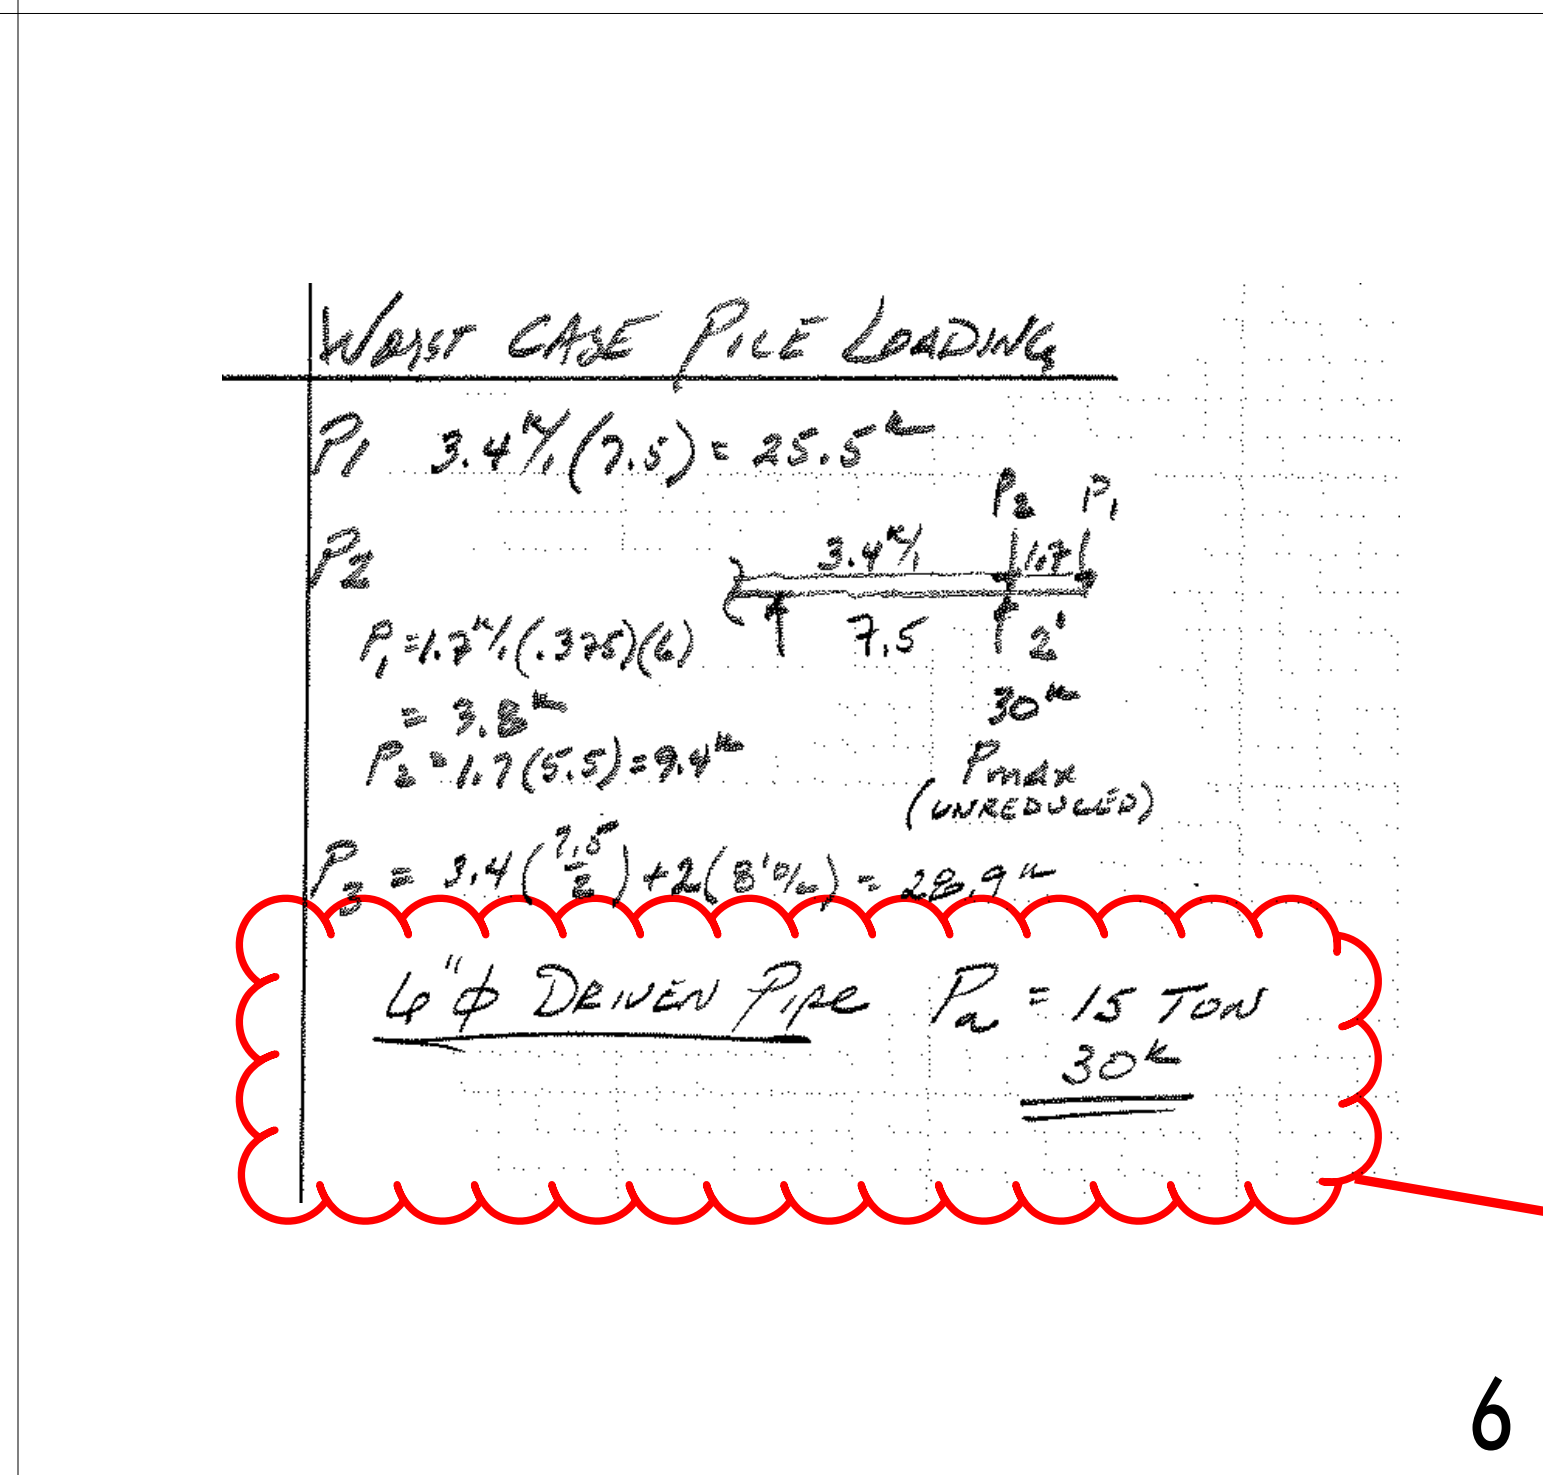 WORST CASE PILE LOADING
P1 3.4 k/' (7.5) = 25.5 k
P2 P1
P2 3.4 k/' 1.7
7.5 2'
P1 = 1.7 k/' (.375)(6)
= 3.8 k
30 k
P2 = 1.7 (5.5) = 9.4 k
Pmax
(UNREDUCED)
P3 = 3.4 (7.5/2) + 2 (8' = 28.9 k
6"φ DRIVEN PIPE Pa = 15 TON
30 k
6